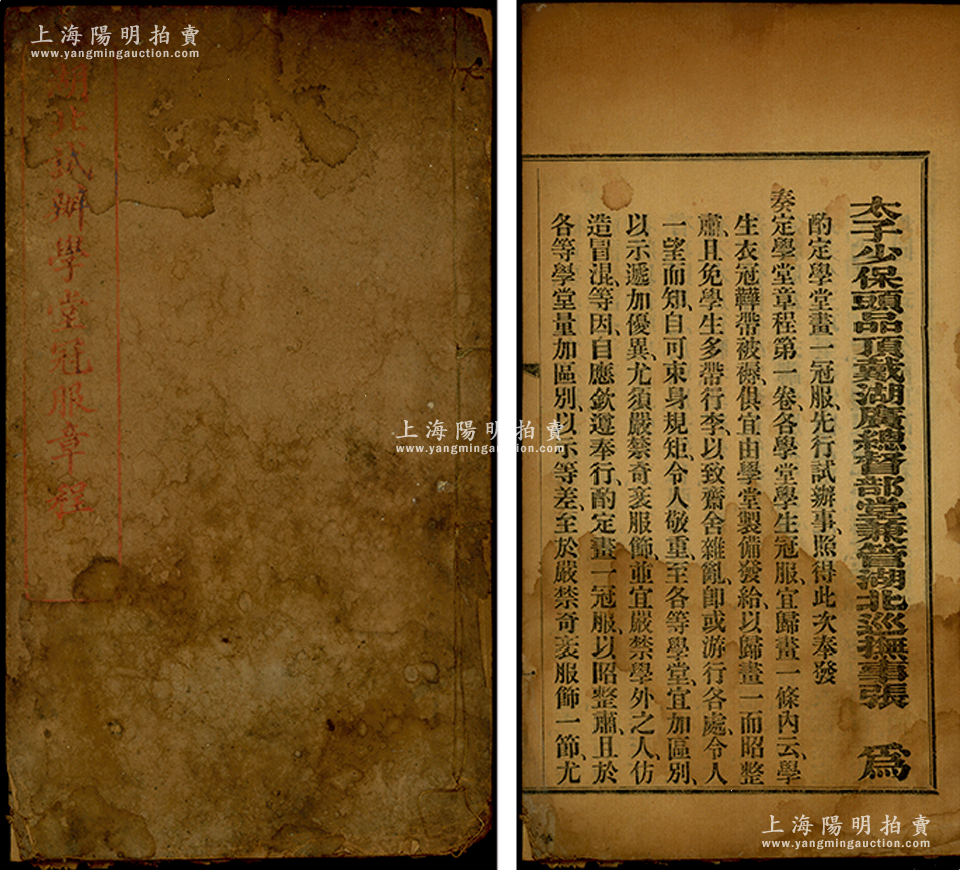 上海陽明拍賣
www.yangmingauction.com
湖北試辦學堂冠服章程
上海陽明拍賣
www.yangmingauction.com
太子少保頭品頂戴湖廣總督部堂兼管湖北巡撫事張 爲
酌定學堂畫一冠服、先行試辦事、照得此次奉發
奏定學堂章程第一卷、各學堂學生冠服、宜歸畫一條內云、學
生衣冠鞾帶被褥、俱宜由學堂製備發給、以歸畫一而昭整
肅、且免學生多帶行李、以致齋舍雜亂、卽或游行各處、令人
一望而知、自可束身規矩、令人敬重、至各等學堂、宜加區別、
以示遞加優異、尤須嚴禁奇衺服飾、並宜嚴禁學外之人、仿
造冒混、等因、自應欽遵奉行、酌定畫一冠服、以昭整肅、且於
各等學堂量加區別、以示等差、至於嚴禁奇衺服飾一節、尤
上海陽明拍賣
www.yangmingauction.com
上海陽明拍賣
www.yangmingauction.com